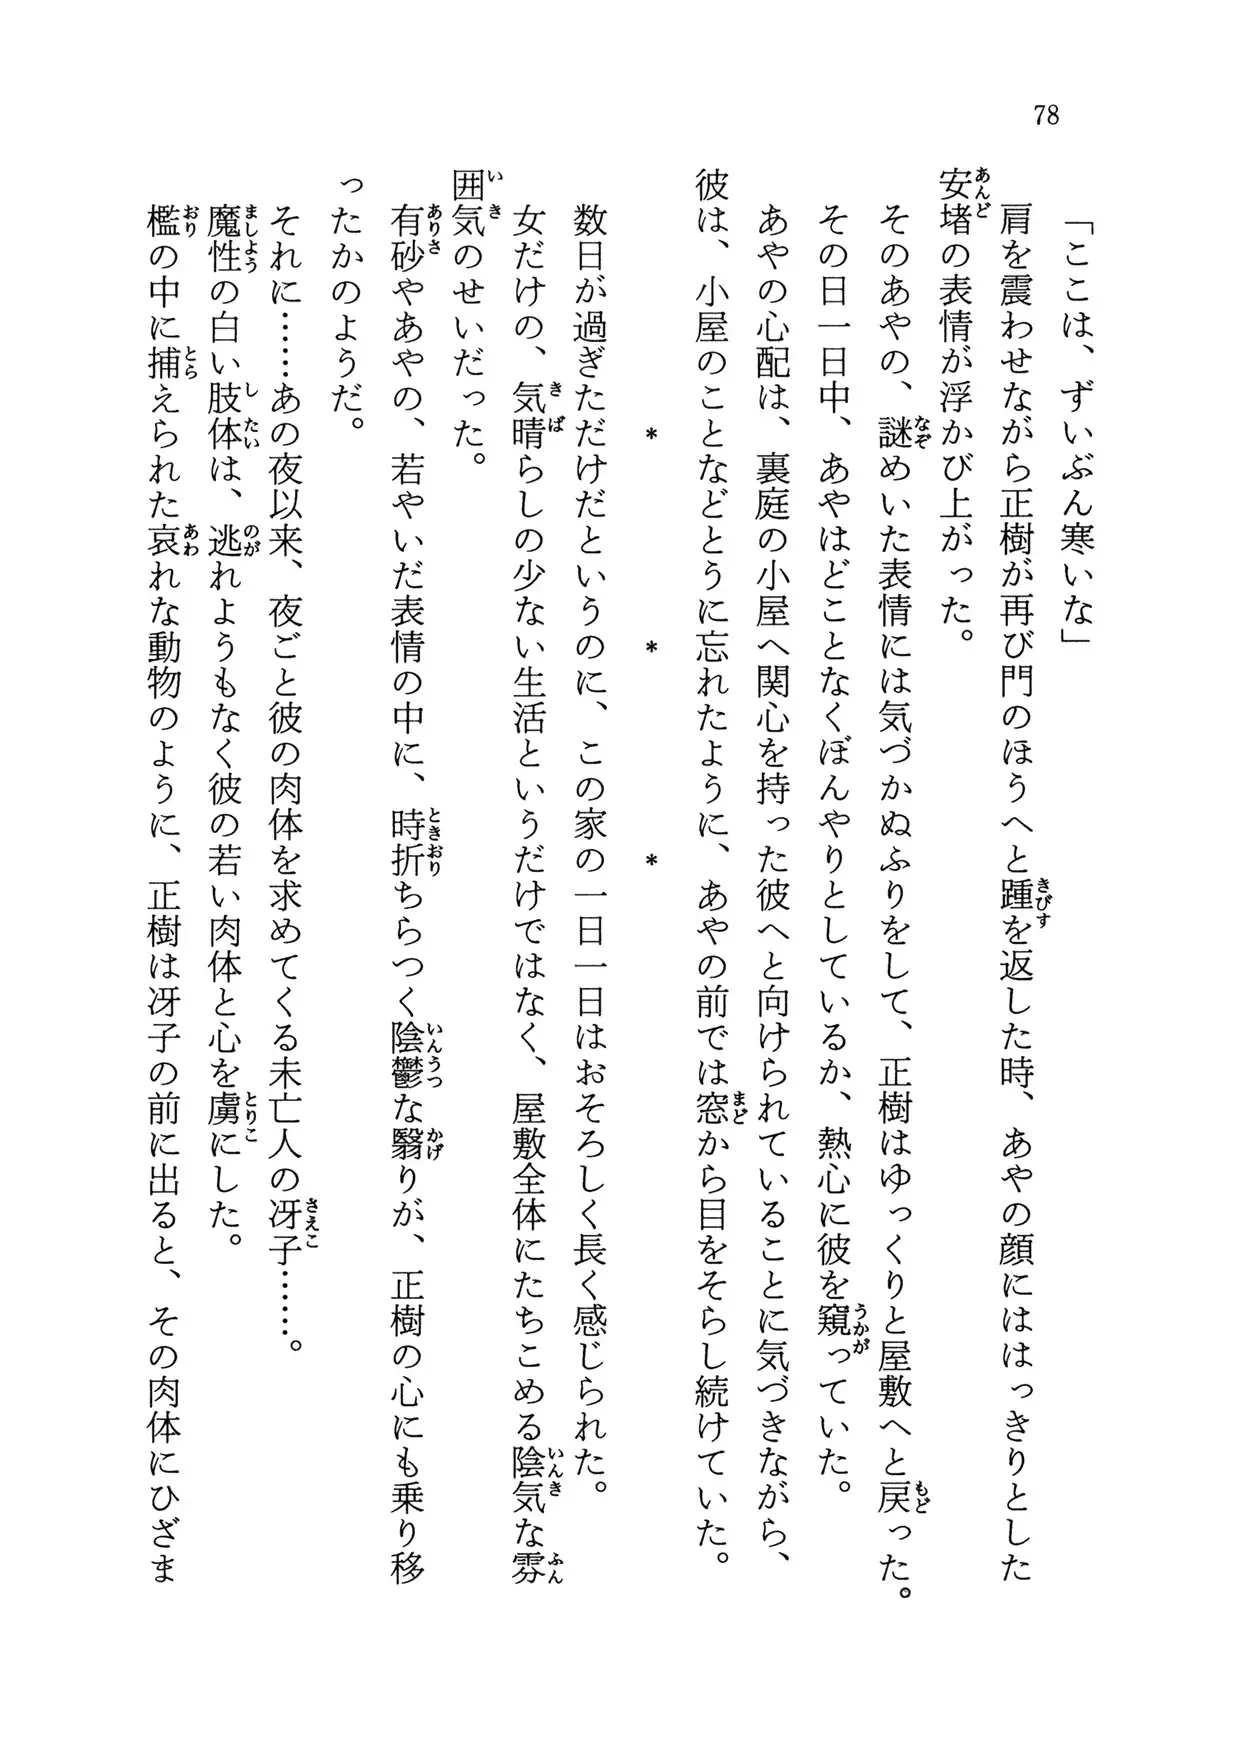 78
「ここは、ずいぶん寒いな」
肩を震わせながら正樹が再び門のほうへと踵を返した時、あやの顔にははっきりとした
安堵の表情が浮かび上がった。
そのあやの、謎めいた表情には気づかぬふりをして、正樹はゆっくりと屋敷へと戻った。
その日一日中、あやはどことなくぼんやりとしているか、熱心に彼を窺っていた。
あやの心配は、裏庭の小屋へ関心を持った彼へと向けられていることに気づきながら、
彼は、小屋のことなどとうに忘れたように、あやの前では窓から目をそらし続けていた。
＊　＊　＊
数日が過ぎただけだというのに、この家の一日一日はおそろしく長く感じられた。
女だけの、気晴らしの少ない生活というだけではなく、屋敷全体にたちこめる陰気な雰
囲気のせいだった。
有砂やあやの、若やいだ表情の中に、時折ちらつく陰鬱な翳りが、正樹の心にも乗り移
ったかのようだ。
それに……あの夜以来、夜ごと彼の肉体を求めてくる未亡人の冴子……。
魔性の白い肢体は、逃れようもなく彼の若い肉体と心を虜にした。
檻の中に捕えられた哀れな動物のように、正樹は冴子の前に出ると、その肉体にひざま